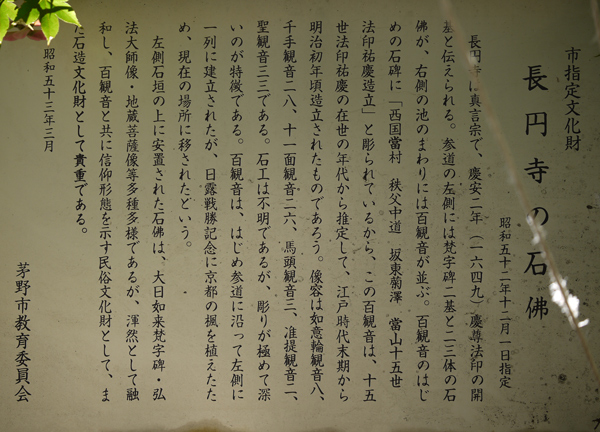 市指定文化財
長円寺の石佛
昭和五十二年十二月一日指定
長円寺は真言宗で、慶安二年(一六四九)慶尊法印の開
基と伝えられる。参道の左側には梵字碑二基と二三体の石
佛が、右側の池のまわりには百観音が並ぶ。百観音のはじ
めの石碑に「西国當村 秩父中道 坂東菊澤 當山十五世
法印祐慶造立」と彫られているから、この百観音は、十五
世法印祐慶の在世の年代から推定して、江戸時代末期から
明治初年頃造立されたものであろう。像容は如意輪観音八、
千手観音二八、十一面観音二六、馬頭観音三、准提観音二、
聖観音三三である。石工は不明であるが、彫りが極めて深
いのが特徴である。百観音は、はじめ参道に沿って左側に
一列に建立されたが、日露戦勝記念に京都の楓を植えたた
め、現在の場所に移されたという。
左側石垣の上に安置された石佛は、大日如来梵字碑・弘
法大師像・地蔵菩薩像等多種多様であるが、渾然として融
和し、百観音と共に信仰形態を示す民俗文化財として、ま
た石造文化財として貴重である。
昭和五十三年三月
茅野市教育委員会